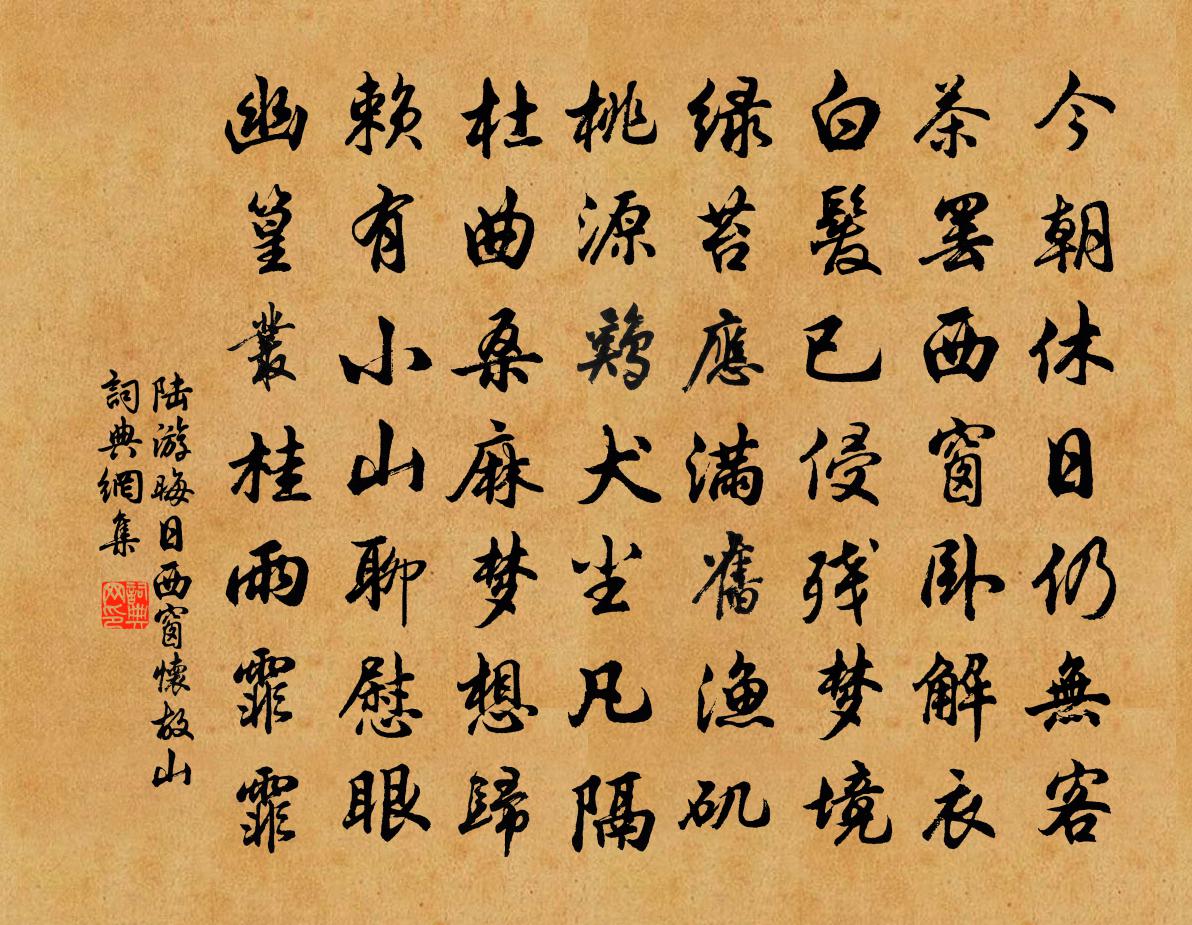 今朝休日仍無客
茶罢西窗卧解衣
白髮已侵残梦境
緑苔應满舊漁矶
桃源鷄犬尘凡隔
杜曲桑麻梦想歸
赖有小山聊慰眼
幽篁叢桂雨霏霏
陆游晦日西窗懷故山
詞典網集
詞典网印